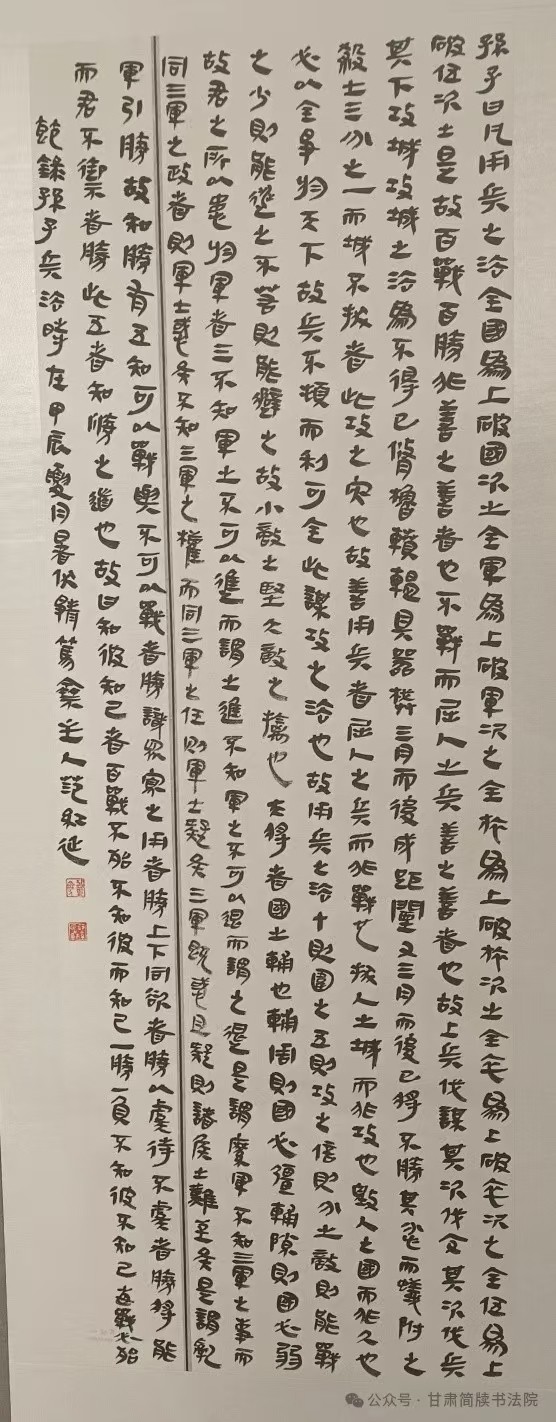 孫子曰凡用兵之法全國為上破國次之全軍為上破軍次之全旅為上破旅次之全卒為上破卒次之全伍為上
破伍次之是故百戰百勝非善之善者也不戰而屈人之兵善之善者也故上兵伐謀其次伐交其次伐兵
其下攻城攻城之法為不得已脩櫓轒轀具器械三月而後成距闉又三月而後已將不勝其忿而蟻附之
殺士三分之一而城不拔者此攻之災也故善用兵者屈人之兵而非戰也拔人之城而非攻也毀人之國而非久也
必以全爭於天下故兵不頓而利可全此謀攻之法也故用兵之法十則圍之五則攻之倍則分之敵則能戰
之少則能逃之不若則能避之故小敵之堅大敵之擒也夫將者國之輔也輔周則國必彊輔隙則國必弱
故君之所以患於軍者三不知軍之不可以進而謂之進不知軍之不可以退而謂之退是謂縻軍不知三軍之事而
同三軍之政者則軍士惑矣不知三軍之權而同三軍之任則軍士疑矣三軍既惑且疑則諸侯之難至矣是謂亂
軍引勝故知勝有五知可以戰與不可以戰者勝識眾寡之用者勝上下同欲者勝以虞待不虞者勝將能
而君不御者勝此五者知勝之道也故曰知彼知己者百戰不殆不知彼而知己一勝一負不知彼不知己每戰必殆
節錄孫子兵法時在甲辰夏月暑伏篤齋主人范紅延
公众号·甘肃简牍书法院